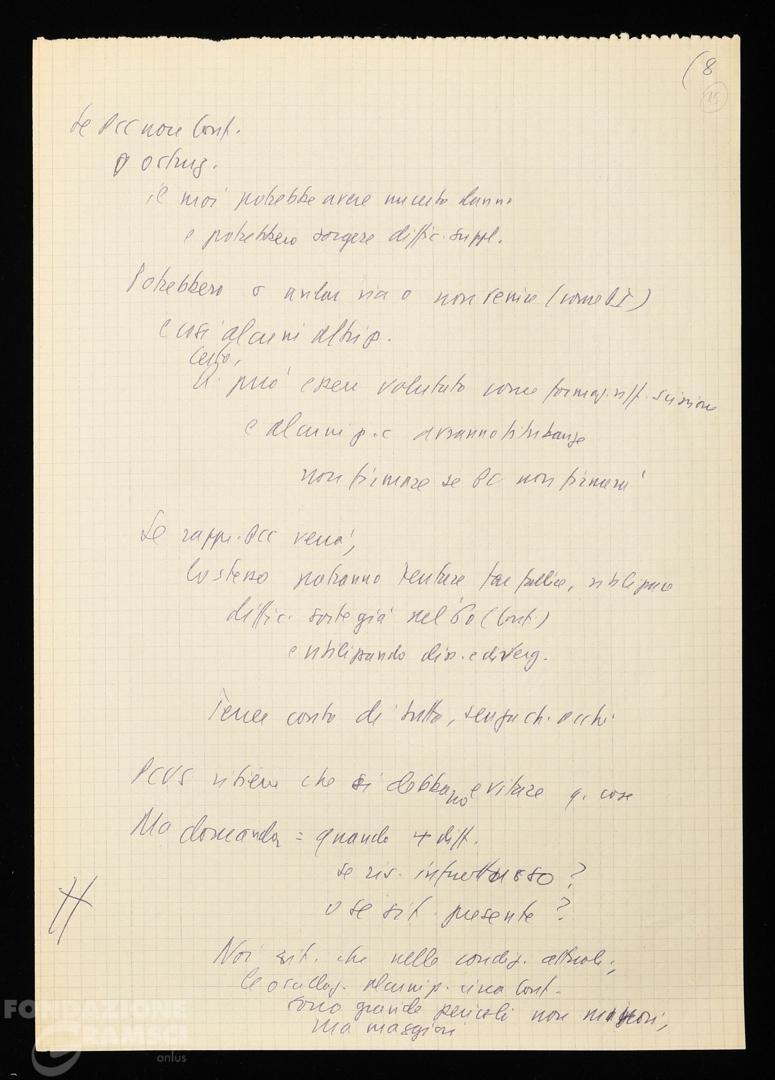 (8
15
Se PCC non Conf.
o ostrug.
il moi potrebbe avere un certo danno
e potrebbero sorgere diffic. suppl.
Potrebbero o andar via o non venire (come PI)
e così alcuni altri p.
Certo,
può essere valutato come formaz. uff. scissione
e alcuni p.c avranno titubanze
non firmare se PC non firmerà
Se rappr. PCC verrà,
lo stesso potranno tentare far fallire,
diffic. sorte già nel 60 (Conf.)
e utilizzando dis. e diverg.
Tener conto di tutto, senza ch. occhi
PCUS ritiene che si debbano evitare q. cose
Ma domanda = quando + diff.
se riv. infruttuoso?
o se sit. presente?
Noi rit. che nelle condiz. attuali,
alcuni p. circa Conf.
sono grande pericoli non minori,
ma maggiori
FONDAZIONE
GRAMSCI
onlus